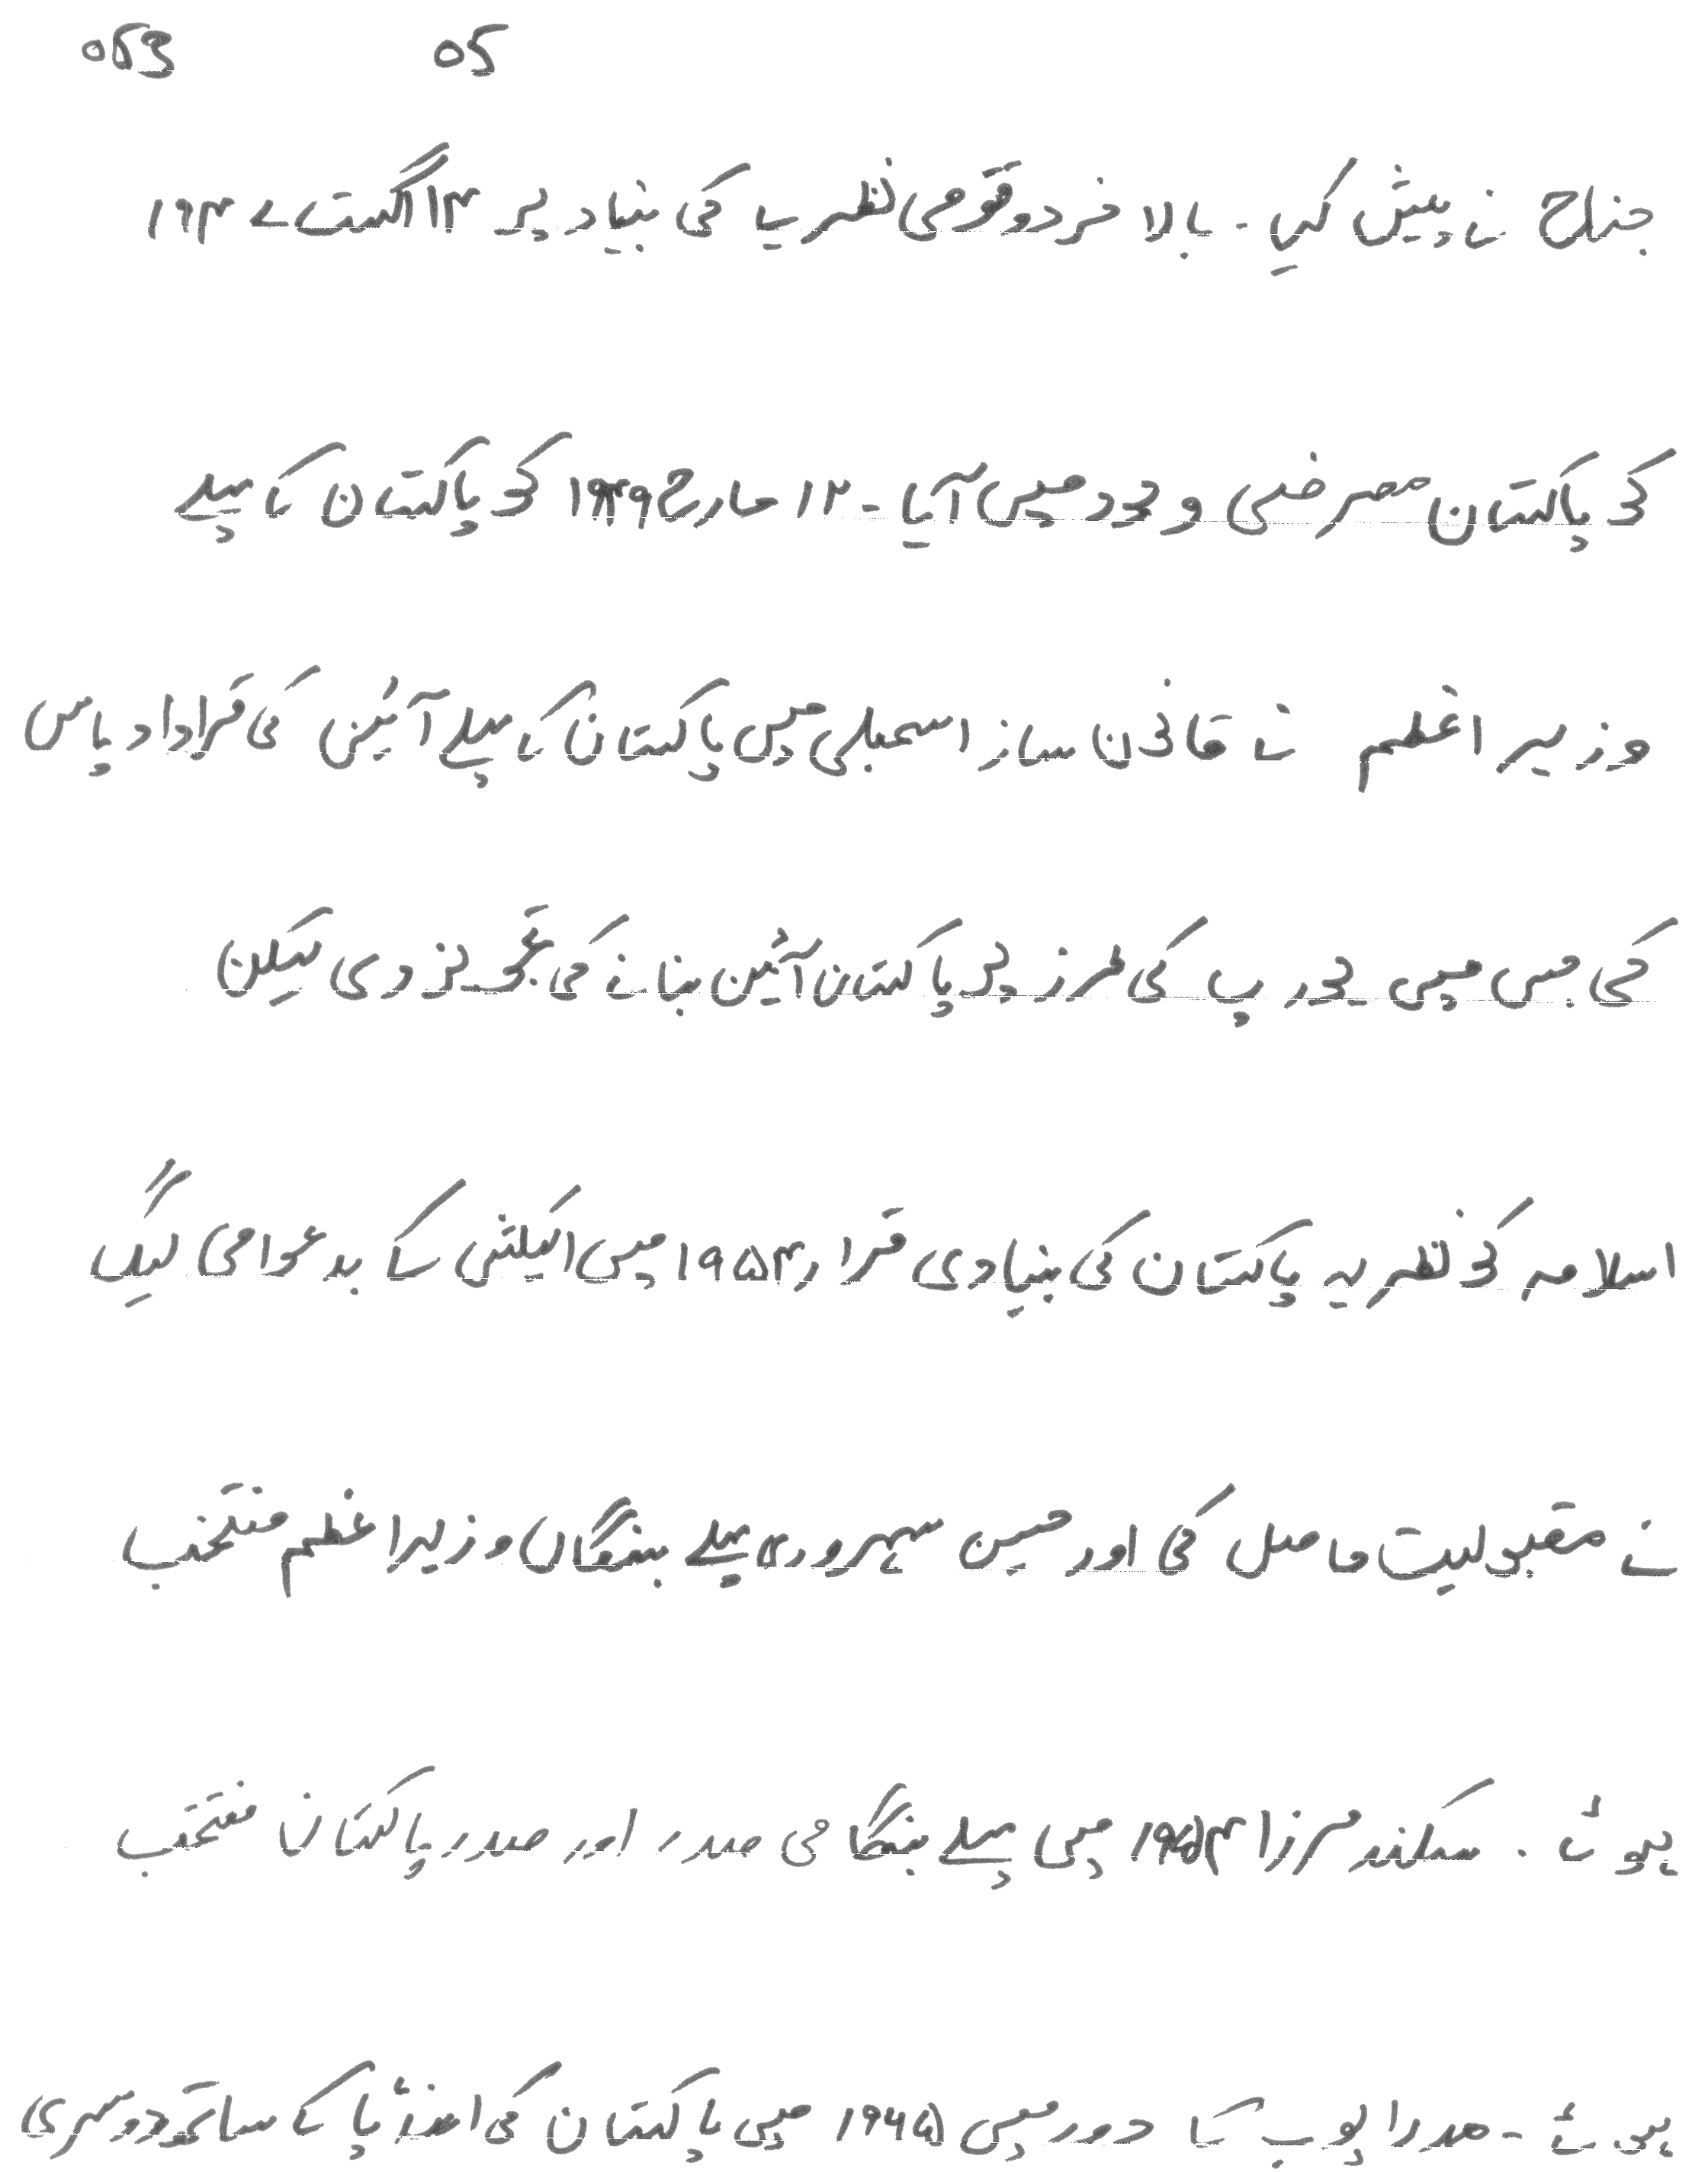 053 05
جناح نے پیش کی ۔ بالا خر دو قومی نظریے کی بنیاد پر ۱۴ اگست ۱۹۴۷
کو پاکستان معرضی وجود میں آیا ۔ ۱۲ مارچ ۱۹۴۹ کو پاکستان کے پہلے
وزیر اعظم نے قانون ساز اسمبلی میں پاکستان کے پہلے آئین کی قرارداد پاس
کی جس میں یورپ کی طرز پر پاکستان آئین بنانے کی تجویز دی لیکن
اسلامہ کو نظریہ پاکستان کی بنیادی قرار ۱۹۵۴ میں الیکشن کے بعد عوامی لیگ
نے مقبولیت حاصل کی اور حسین سہروردی پہلے بنگالی وزیر اعظم منتخب
ہوئے ۔ سکندر مرزا ۱۹۵۴ میں پہلے بنگامی صدر اور صدر پاکستان منتخب
ہوئے ۔ صدر ایوب کے دور میں ۱۹۶۵ میں پاکستان کی انڈیا کے ساتھ دوسری